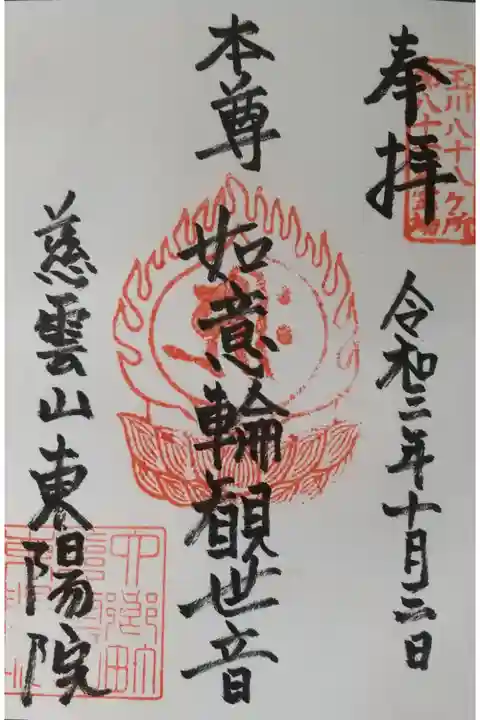 奉拝
玉川八十八ケ所
令和二年十月二日
本尊
如意輪観世音
慈雲山東陽院